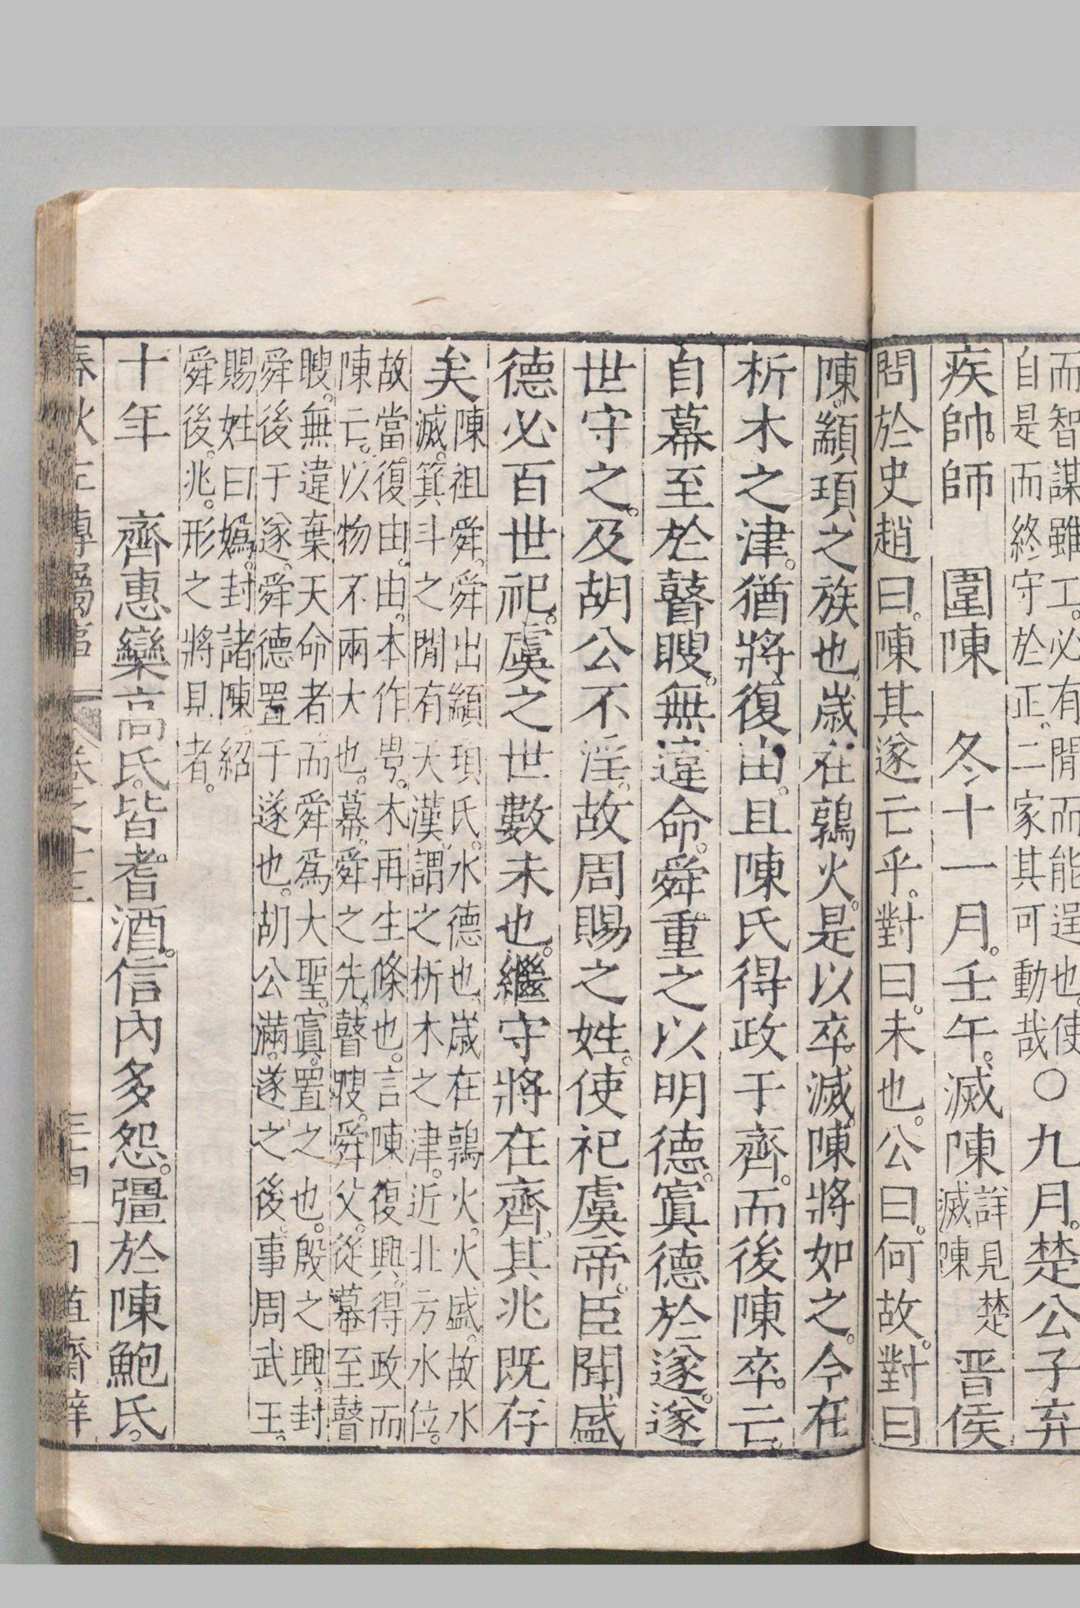 而智謀雖工。必有閒而能逞也。使
自是而終守於正。二家其可動哉○九月。楚公子弃
疾帥師　圍陳　冬十一月。壬午。滅陳詳見楚滅陳　晋侯
問於史趙曰。陳其遂亡乎。對曰。未也。公曰。何故。對曰
陳顓頊之族也歲在鶉火。是以卒滅。陳將如之。今在
析木之津。猶將復由。且陳氏得政于齊。而後陳卒亡。
自幕至於瞽瞍。無違命。舜重之以明德。寘德於遂。遂
世守之。及胡公不淫。故周賜之姓。使祀虞帝。臣聞盛
德必百世祀。虞之世數未也。繼守將在齊。其兆既存
矣陳祖舜。舜出顓頊氏。水德也歲在鶉火。火盛。故水
滅。箕斗之閒有天漢。謂之析木之津。近北方水位。
故當。復由。由。本作甹。木再生條也。言陳復興。得政而
陳亡。以物不兩大也。幕。舜之先。瞽瞍。舜父。從幕至瞽
瞍。無違棄天命者而舜爲大聖。寘。置之也。殷之興。封
舜後于遂。舜德置于遂也。胡公滿。遂之後。事周武王。
賜姓曰嬀。封諸陳。紹
舜後。兆。形之將見者。
十年　齊惠欒高氏。皆耆酒。信內多怨。彊於陳鮑氏。
春秋左傳